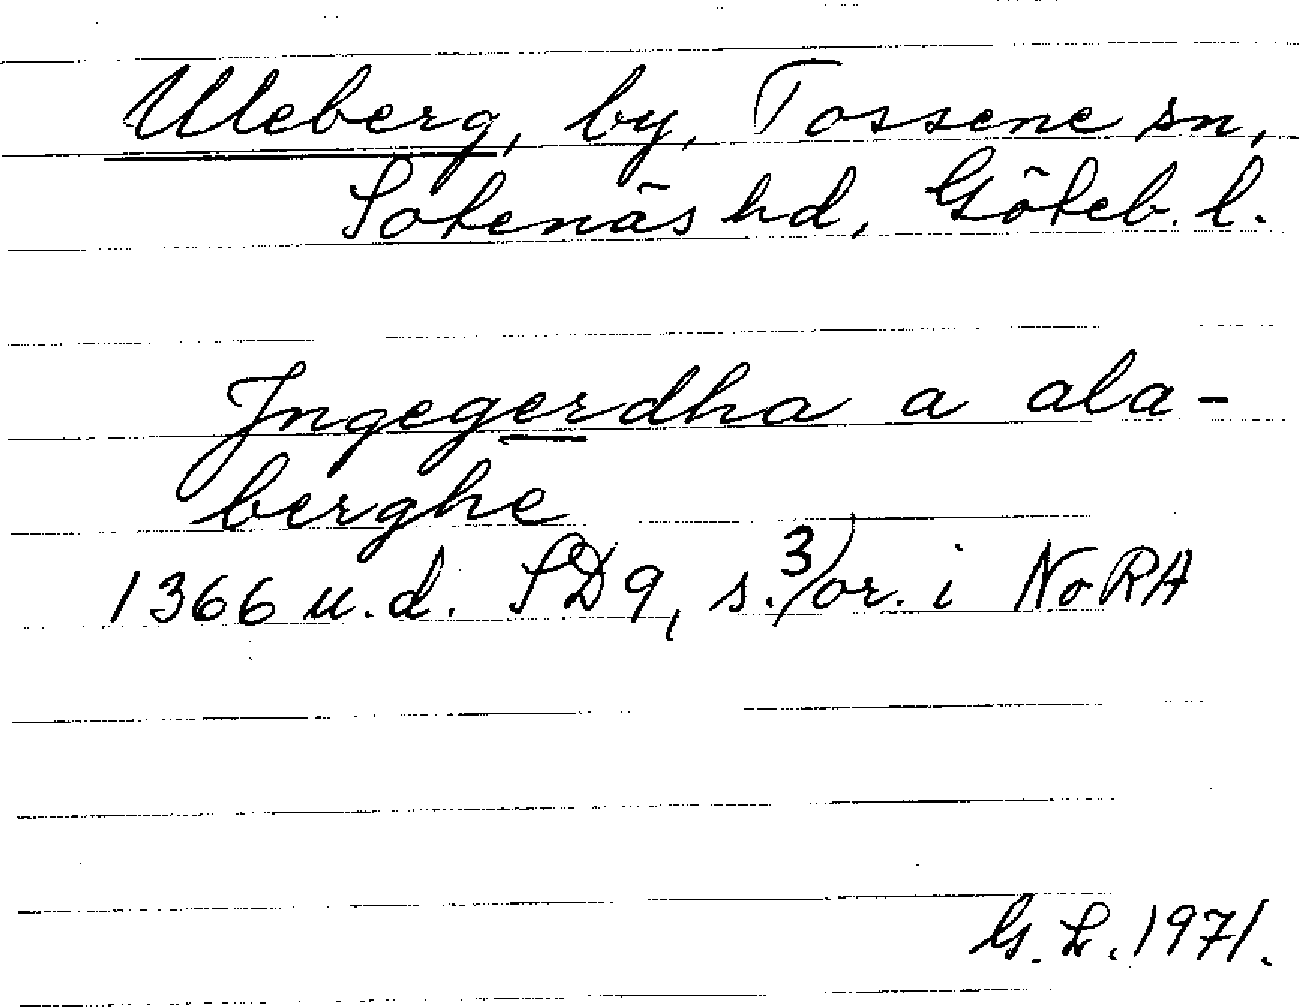 Uleberg, by, Tossene sn,
Sotenäs hd, Göteb. l.
Jngegerdha a ala-
berghe
1366 u.d. SD9, s.3, or. i NoRA
G. L. 1971.